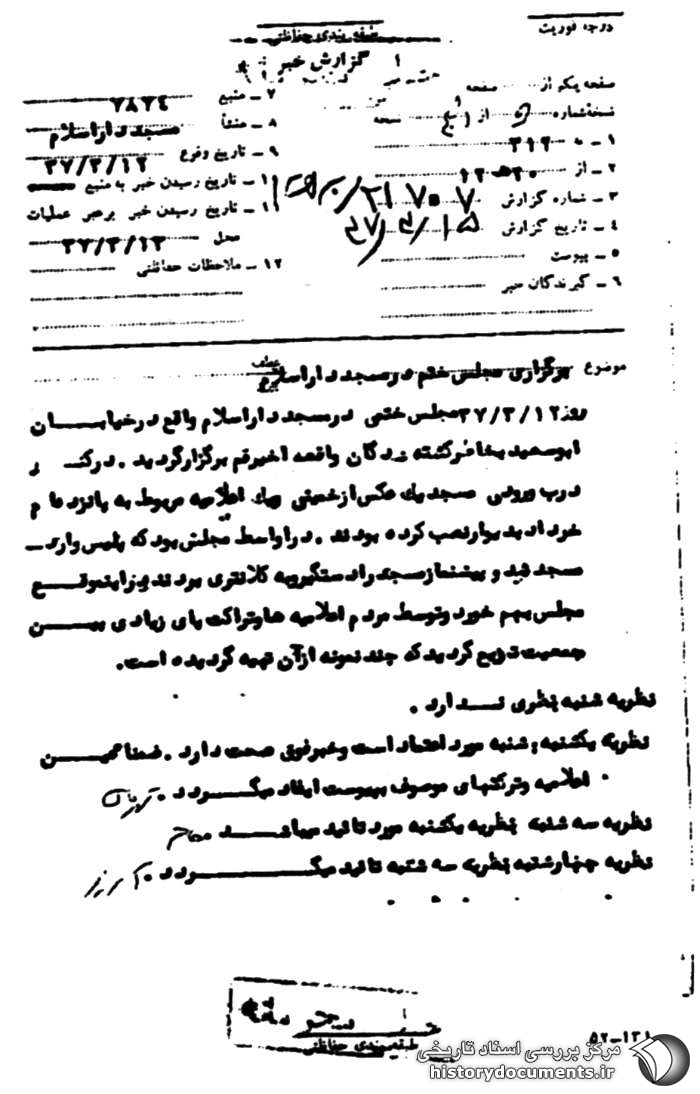 درجه فوریت
طبقه بندی حفاظتی
گزارش خبر
صفحه یکم از صفحه
نسخه شماره از نسخه
۱ ـ به ۳۱۲
۲ ـ از ۲۰ هـ ۱۲
۳ ـ شماره گزارش ۲۱۷۰۷
۴ ـ تاریخ گزارش ۳۷/۳/۱۵
۵ ـ پیوست
۶ ـ گیرندگان خبر
۷ ـ منبع ۷۸۷۴
۸ ـ منشأ مسجد دارالسلام
۹ ـ تاریخ وقوع ۳۷/۳/۱۲
۱۰ ـ تاریخ رسیدن خبر به منبع
۱۱ ـ تاریخ رسیدن خبر به رهبر عملیات
محل ۳۷/۳/۱۳
۱۲ ـ ملاحظات حفاظتی
موضوع برگزاری مجلس ختم در مسجد داراسلام
عطف
روز ۳۷/۳/۱۲ مجلس ختمی در مسجد داراسلام واقع در خیابـــان
ابوسعید بخاطر کشته شدگان واقعه اخیر قم برگزار گردید . در کنـــار
درب ورودی مسجد یک عکس از خمینی ویک اعلامیه مربوط به پانزدهم
خرداد بدیوار نصب کرده بودند . در اواسط مجلس بود که پلیس وارد
مسجد شد و پیشنماز مسجد را دستگیر و به کلانتری بردند در اینموقـــع
مجلس بهم خورد و توسط مردم اعلامیه ها و تراکت های زیادی بیـــن
جمعیت توزیع گردید که چند نمونه از آن تهیه گردیده است .
نظریه شنبه نظری نـــدارد .
نظریه یکشنبه ؛ شنبه مورد اعتماد است و خبر فوق صحت دارد . ضمنا عیـــن
اعلامیه و تراکتهای موصوف بپیوست ایفاد میگـــردد .
نظریه سه شنبه نظریه یکشنبه مورد تائید میباشـــد
نظریه چهارشنبه نظریه سه شنبه تائید میگـــردد .
طبقه بندی حفاظتی
۵۲ـ۱۳۱
مرکز بررسی اسناد تاریخی
historydocuments.ir